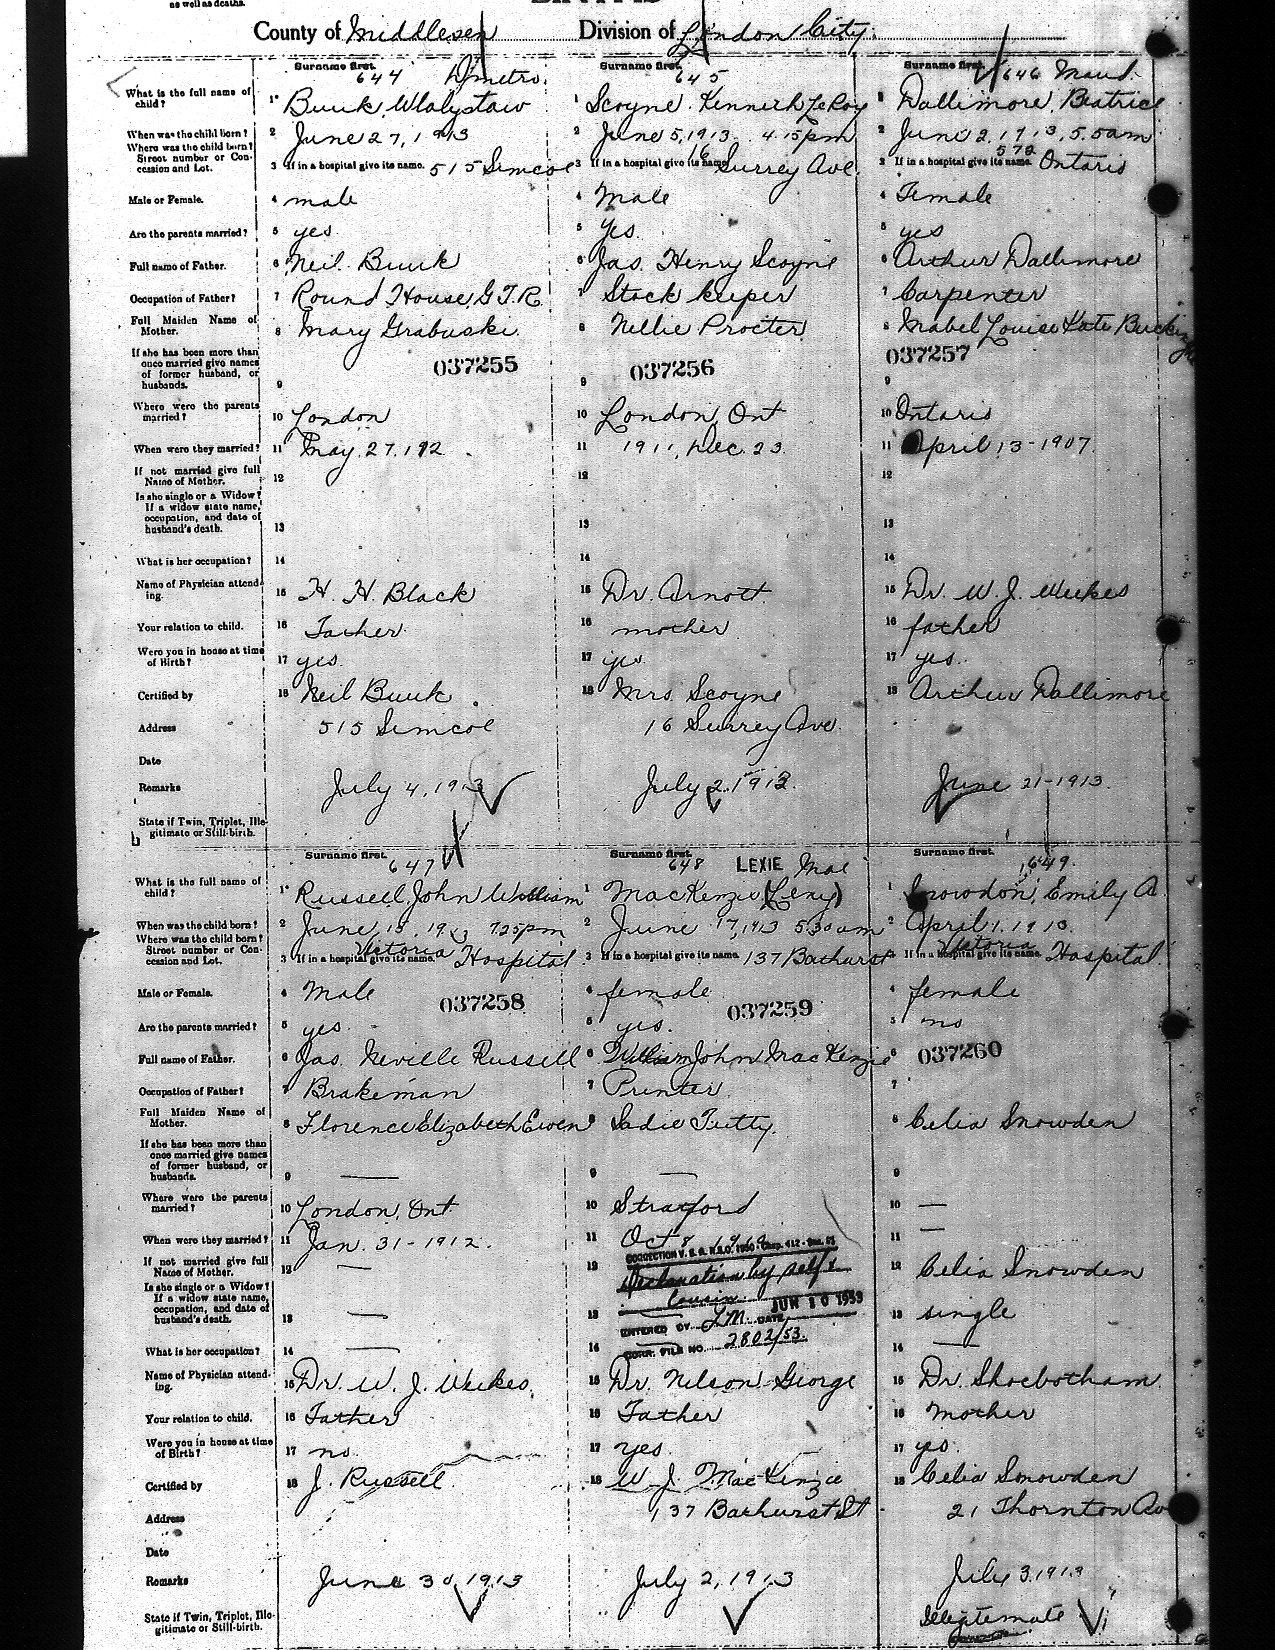 as well as deaths.
County of Middlesex Division of London City.
Surname first. Surname first. Surname first.
644 Dmetro. 645 646 Maud.
What is the full name of child? 1 Buuk, Wlalystaw 1 Scoyne Kenneth LeRoy 1 Dallimore, Beatrice
When was the child born? 2 June 27, 1913 2 June 5, 1913. 4.15 pm 2 June 2, 1913, 5.5 am
Where was the child born? Street number or Concession and Lot. 3 If in a hospital give its name. 515 Simcoe 3 If in a hospital give its name 16 Surrey Ave. 3 If in a hospital give its name. 572 Ontario
Male or Female. 4 male 4 Male 4 Female
Are the parents married? 5 yes. 5 Yes. 5 yes
Full name of Father. 6 Neil Buuk 6 Jas. Henry Scoyne 6 Arthur Dallimore
Occupation of Father? 7 Round House G.T.R. 7 Stock keeper 7 Carpenter
Full Maiden Name of Mother. 8 Mary Grabuski. 8 Nellie Procter 8 Mabel Louise Kate
037255 037256 037257
If she has been more than once married give names of former husband, or husbands. 9 9 9
Where were the parents married? 10 London 10 London, Ont 10 Ontario
When were they married? 11 May. 27. 192 . 11 1911, Dec. 23. 11 April 13 - 1907.
If not married give full Name of Mother. 12 12 12
Is she single or a Widow? If a widow state name, occupation, and date of husband's death. 13 13 13
What is her occupation? 14 14 14
Name of Physician attending. 15 H. H. Black 15 Dr. Arnott. 15 Dr. W. J. Weekes
Your relation to child. 16 Father. 16 mother 16 father
Were you in house at time of Birth? 17 yes. 17 yes 17 yes.
Certified by 18 Neil Buuk. 18 Mrs Scoyne 18 Arthur Dallimore
Address 515 Simcoe 16 Surrey Ave.
Date
Remarks July 4, 1913 July 2. 1913. June 21 - 1913.
State if Twin, Triplet, Illegitimate or Still-birth.
Surname first. Surname first. Surname first.
647 648 LEXIE Mae 649.
What is the full name of child? 1 Russell, John William 1 MacKenzie (Leny) 1 Snowdon, Emily A.
When was the child born? 2 June, 18, 1913 7.25 pm 2 June 17, 1913 5.30 am 2 April 1. 1913.
Where was the child born? Street number or Concession and Lot. 3 If in a hospital give its name. Victoria Hospital. 3 If in a hospital give its name. 137 Bathurst If in a hospital give its name. Victoria Hospital.
Male or Female. 4 Male 4 female 4 female
037258 037259
Are the parents married? 5 yes. 5 yes. 5 no
Full name of Father. 6 Jas. Neville Russell 6 William John MacKenzie 6 037260
Occupation of Father? 7 Brakeman 7 Printer 7
Full Maiden Name of Mother. 8 Florence Elizabeth Ewen 8 Sadie Tutty. 8 Celia Snowden
If she has been more than once married give names of former husband, or husbands. 9 — 9 — 9
Where were the parents married? 10 London, Ont 10 Stratford 10 —
When were they married? 11 Jan. 31 - 1912. 11 Oct 8 11 —
CORRECTION V.S.A. R.S.O. 1950 Chap. 412
If not married give full Name of Mother. 12 — 12 Declaration by self & 12 Celia Snowden
cousin. JUN 10 1953
Is she single or a Widow? If a widow state name, occupation, and date of husband's death. 13 — 13 13 single
ENTERED BY L.M. DATE
CORR. FILE NO. 2802/53.
What is her occupation? 14 — 14 14 —
Name of Physician attending. 15 Dr. W. J. Weekes. 15 Dr. Nelson George 15 Dr. Shoebotham.
Your relation to child. 16 Father 16 Father 16 Mother
Were you in house at time of Birth? 17 no. 17 yes. 17 yes.
Certified by 18 J. Russell. 18 W. J. MacKenzie 18 Celia Snowden
Address 137 Bathurst St 21 Thornton Av
Date
Remarks June 30, 1913 July 2, 1913 July 3, 1913
State if Twin, Triplet, Illegitimate or Still-birth. Illegitemate